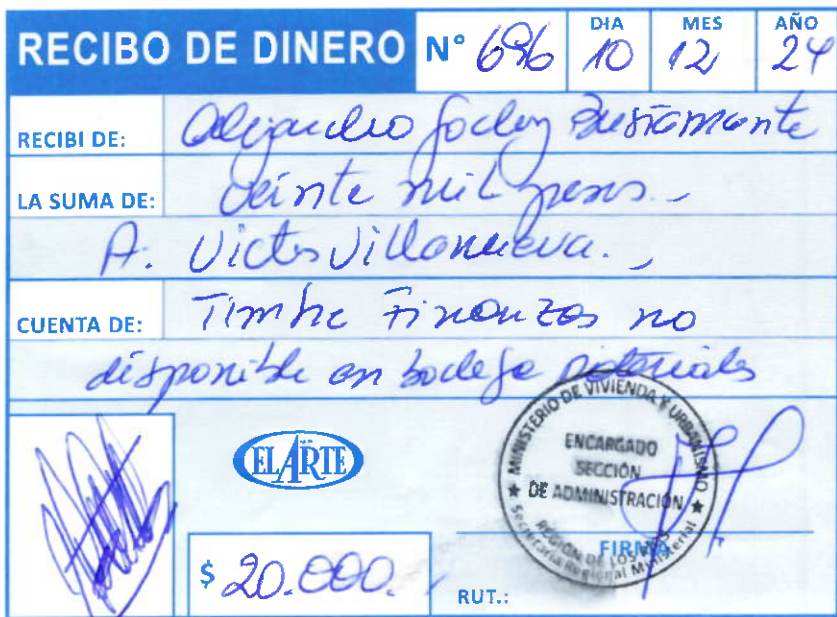 RECIBO DE DINERO N° 696 DIA 10 MES 12 AÑO 24
RECIBI DE: Alejandro Godoy Bustamante
LA SUMA DE: Veinte mil pesos.-
A. Victor Villanueva.,
CUENTA DE: Timbre Finanzas no
disponible en bodega materiales
EL ARTE
MINISTERIO DE VIVIENDA Y URBANISMO
ENCARGADO
SECCIÓN
DE ADMINISTRACIÓN
REGIÓN DE LOS
Secretaría Regional Ministerial
FIRMA
$ 20.000.
RUT.: